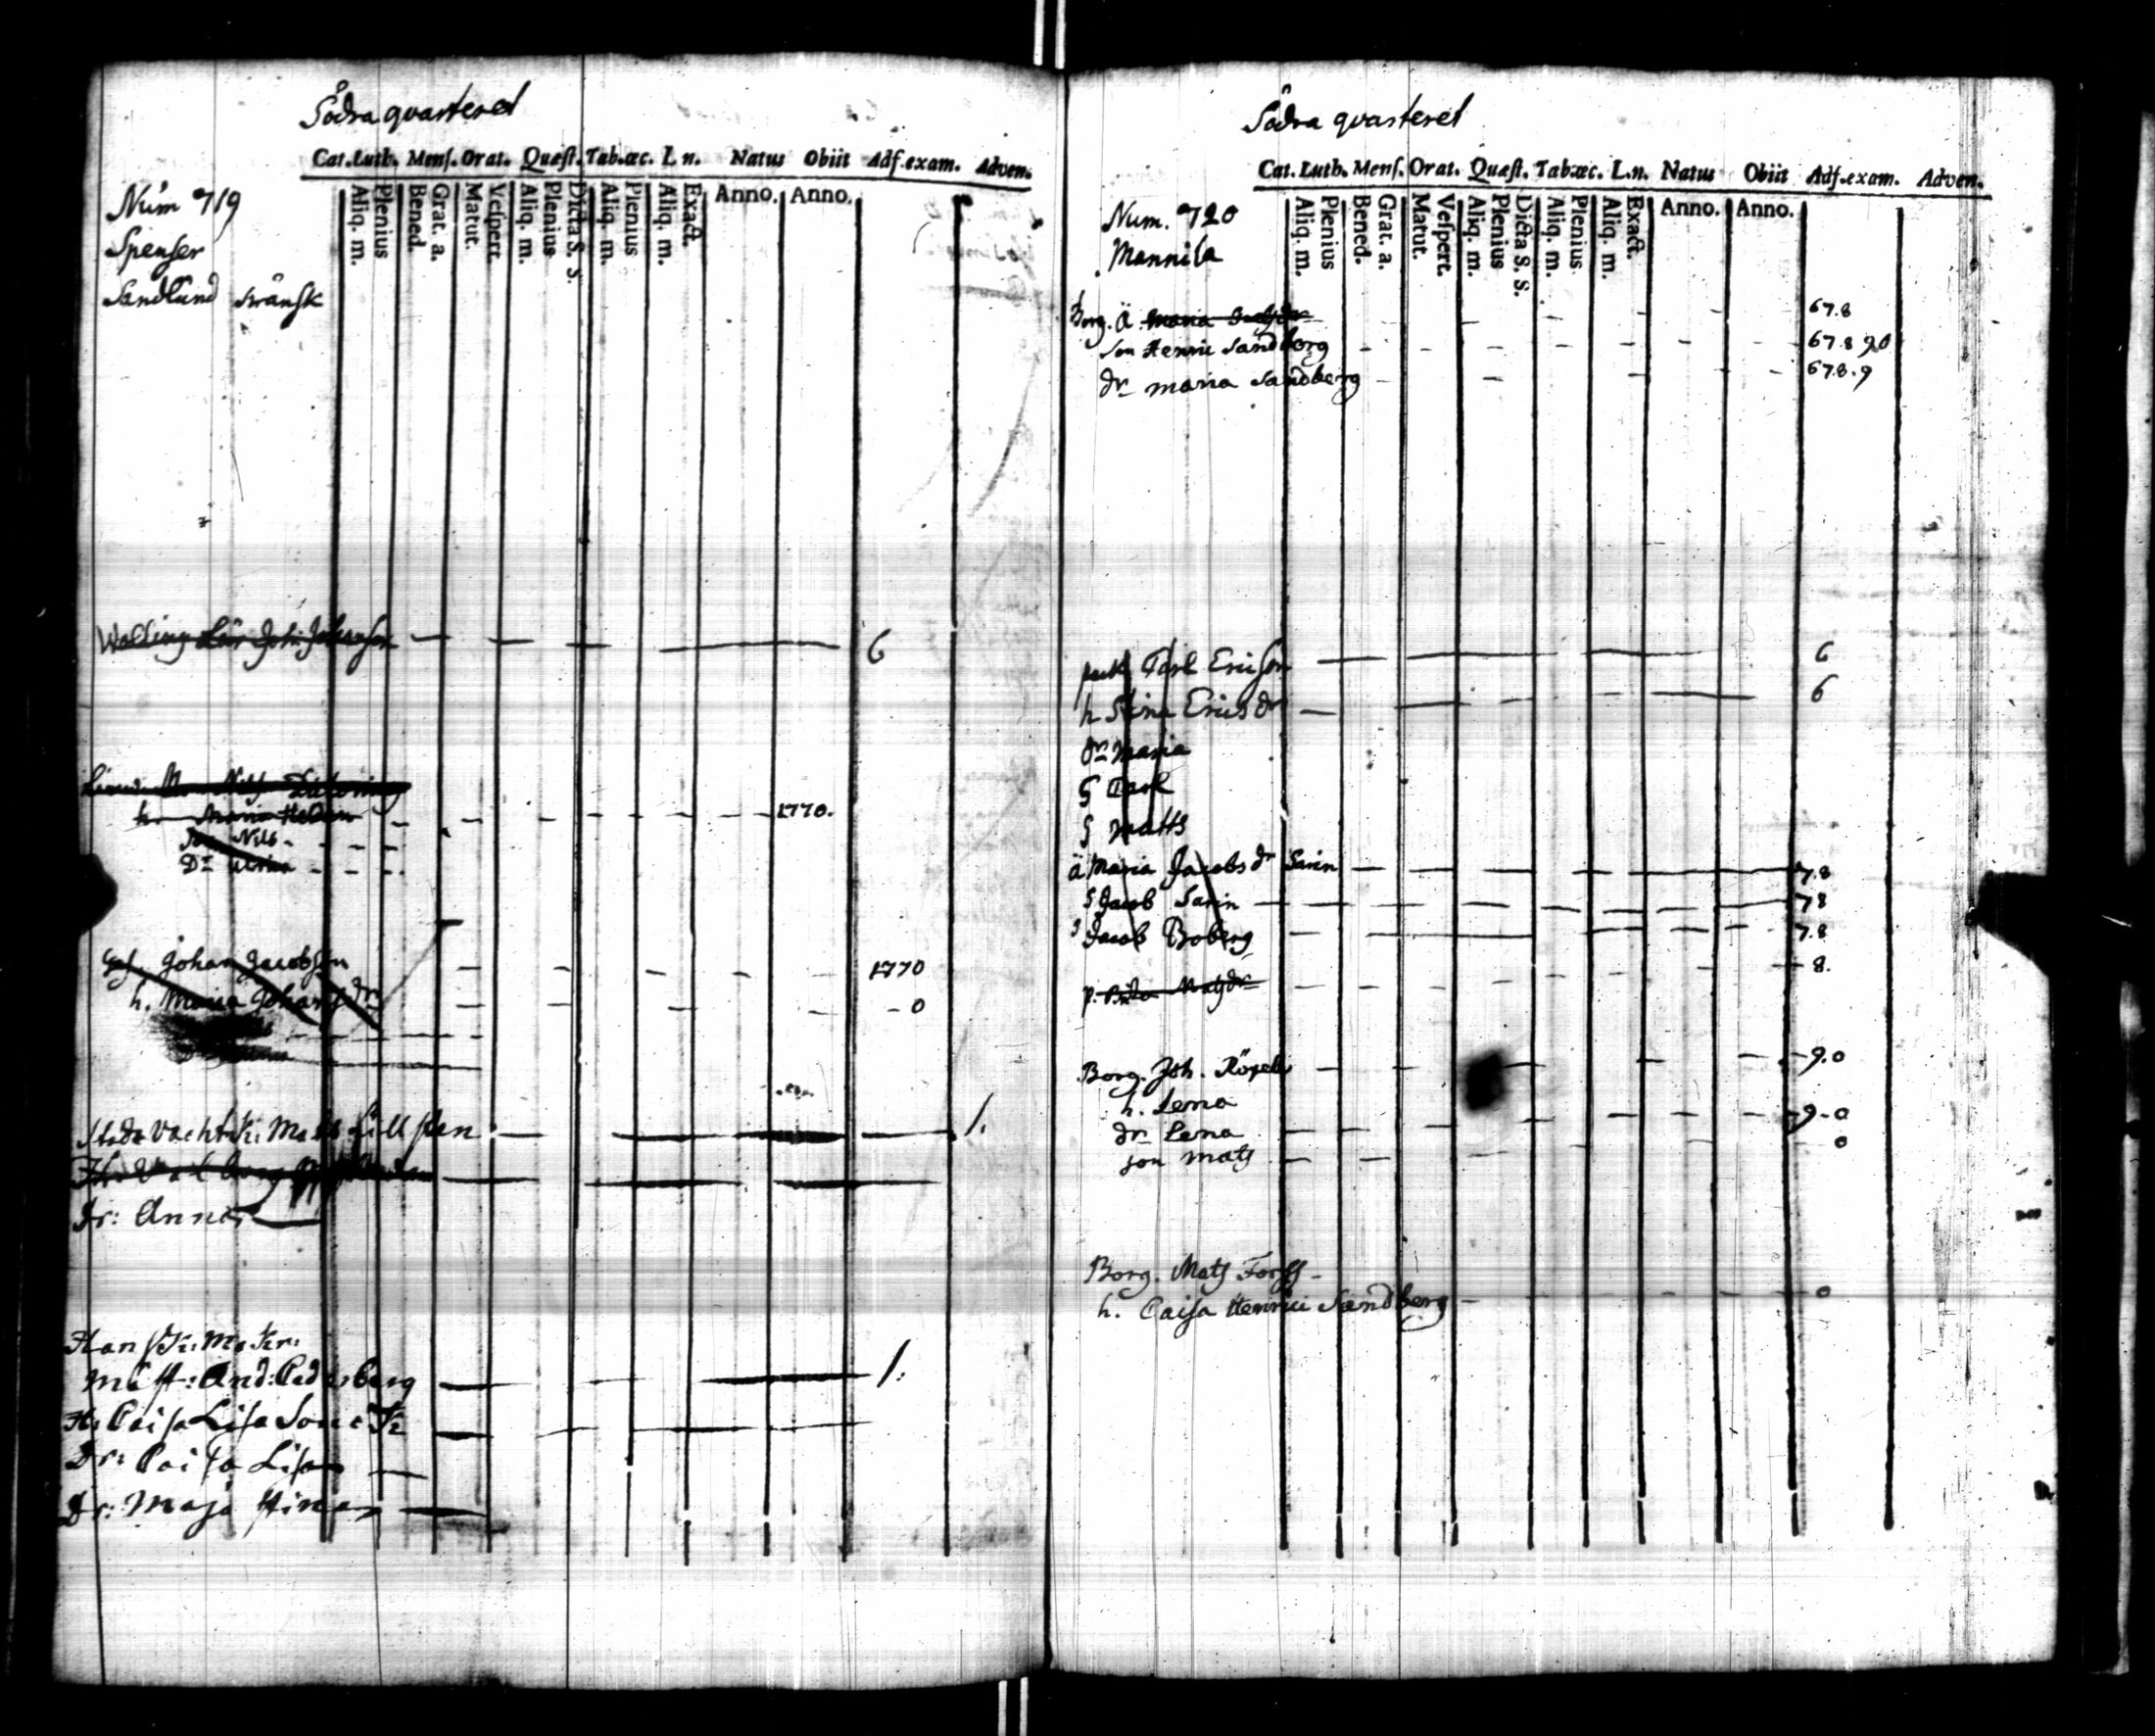 Södra qvarteret
Cat. Luth. Menſ. Orat. Quæſt. Tab.œc. L n. Natus Obiit Adſ.exam. Adven.
Aliq. m. Plenius Bened. Grat. a. Matut. Veſpert. Aliq. m. Plenius Dicta S. S. Aliq. m. Plenius Aliq. m. Exact. Anno. Anno.
Num 719
Spenser
Sandlund swänsk
Walling Joh: Johansson 6
h. Maria 1770.
Son Nils
Dr Ulrica
Johan Jacobsson 1770
h. Maria Johansdr 0
Mats Lillsten 1.
dr: Anna
Hansk: Makr:
Mäst: And: Cederberg 1.
H: Caisa Lisa
Dr: Caisa Lisa
Dr: Maja Stina
Södra qvarteret
Cat. Luth. Menſ. Orat. Quæſt. Tab.œc. L.n. Natus Obiit Adſ.exam. Adven.
Aliq. m. Plenius Bened. Grat. a. Matut. Veſpert. Aliq. m. Plenius Dicta S. S. Aliq. m. Plenius Aliq. m. Exact. Anno. Anno.
Num. 720
Mannila
Borg. Ä. Maria 67.8
Son Henric Sandberg 67.8 9.0
dr maria Sandberg 67.8.9
Carl Ericson 6
h Stina Ericsdr 6
dr Maria
S Carl
S Matts
ä Maria Jacobsdr Sarin 7.8
S Jacob Sarin 78
S Jacob Boberg 7.8
p. Matsdr 8.
Borg. Joh. 9.0
h. Lena
dr Lena 9.0
son mats 0
Borg. Mats Forss
h. Caisa Henrici Sandberg 0